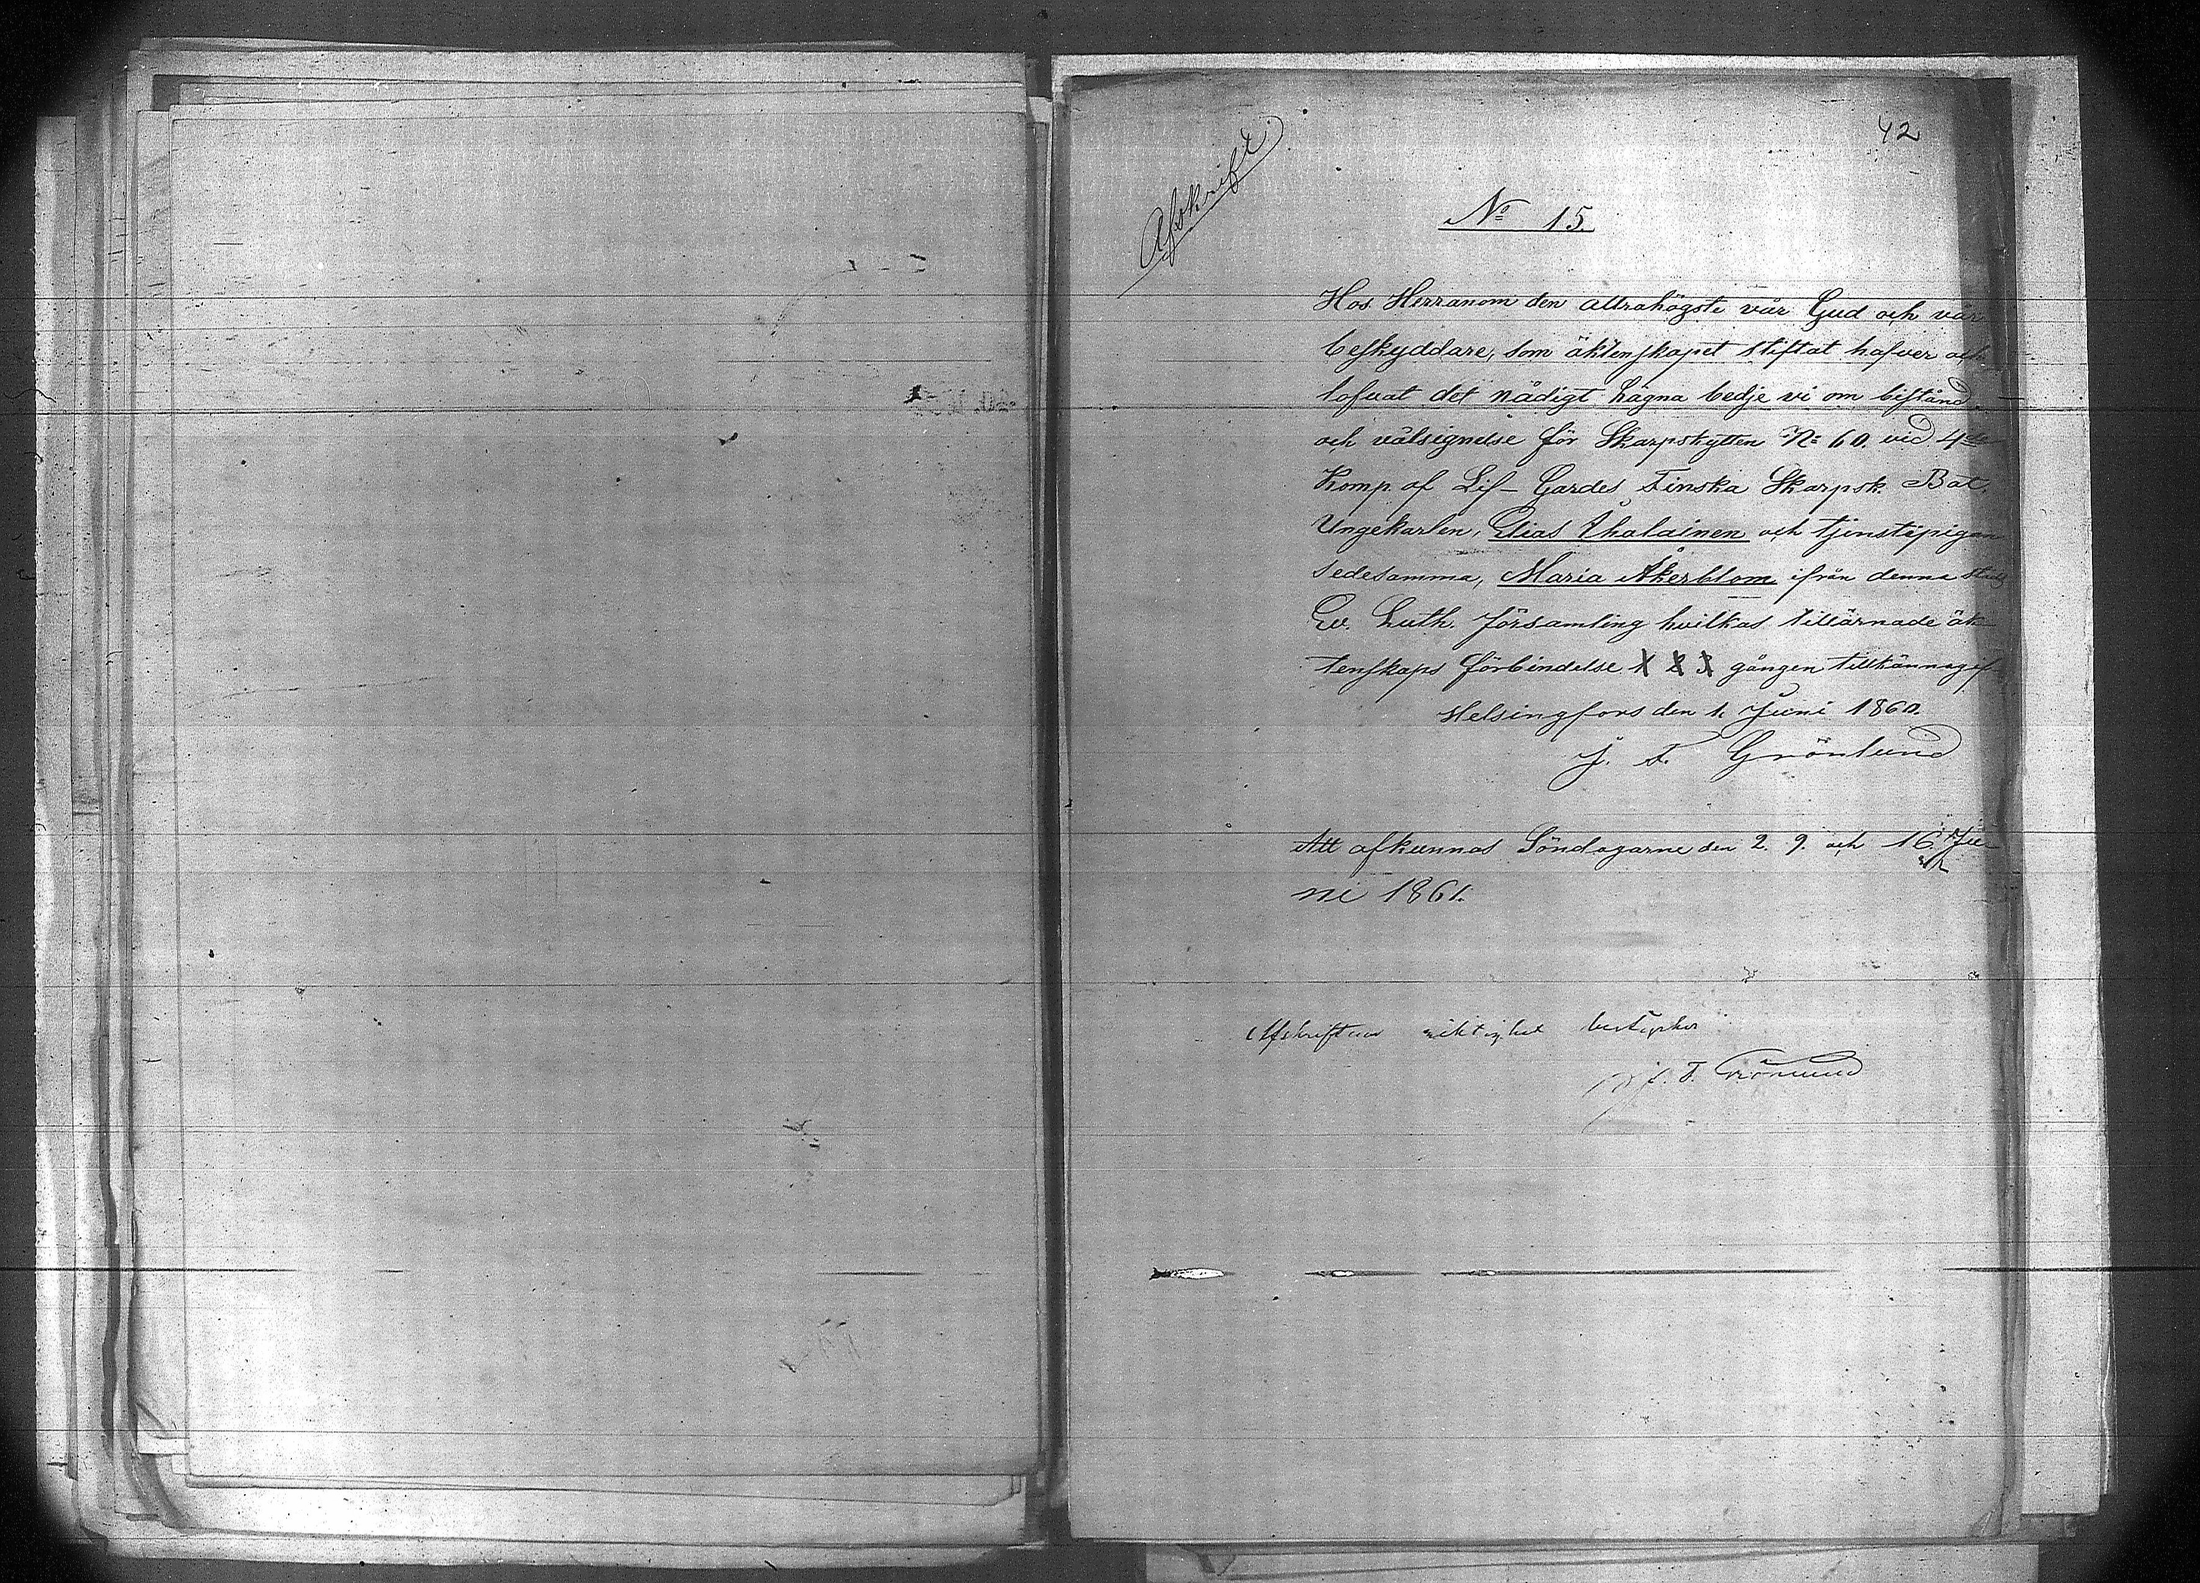 42
Afskrift.
No 15.
Hos Herranom den allrahögste vår Gud och vår
beskyddare, som äktenskapet stiftat hafver och
lofvat det nådigt hägna bedje vi om bistånd
och välsignelse för Skarpskytten No 60. vid 4de
Komp. af Lif-Gardes Finska Skarpsk. Bat.
Ungekarlen, Elias Ihalainen och tjenstepigan
sedesamma, Maria Åkerblom ifrån denna stads
Ev. Luth. församling hvilkas tillärnade äk-
tenskaps förbindelse 1 2 3 gången tillkännagif
Helsingfors den 1. Juni 1860.
J. F. Grönlund
Att afkunnas Söndagarne den 2. 9. och 16 Ju-
ni 1861.
Afskriftens riktighet bestyrker
J. F. Grönlund